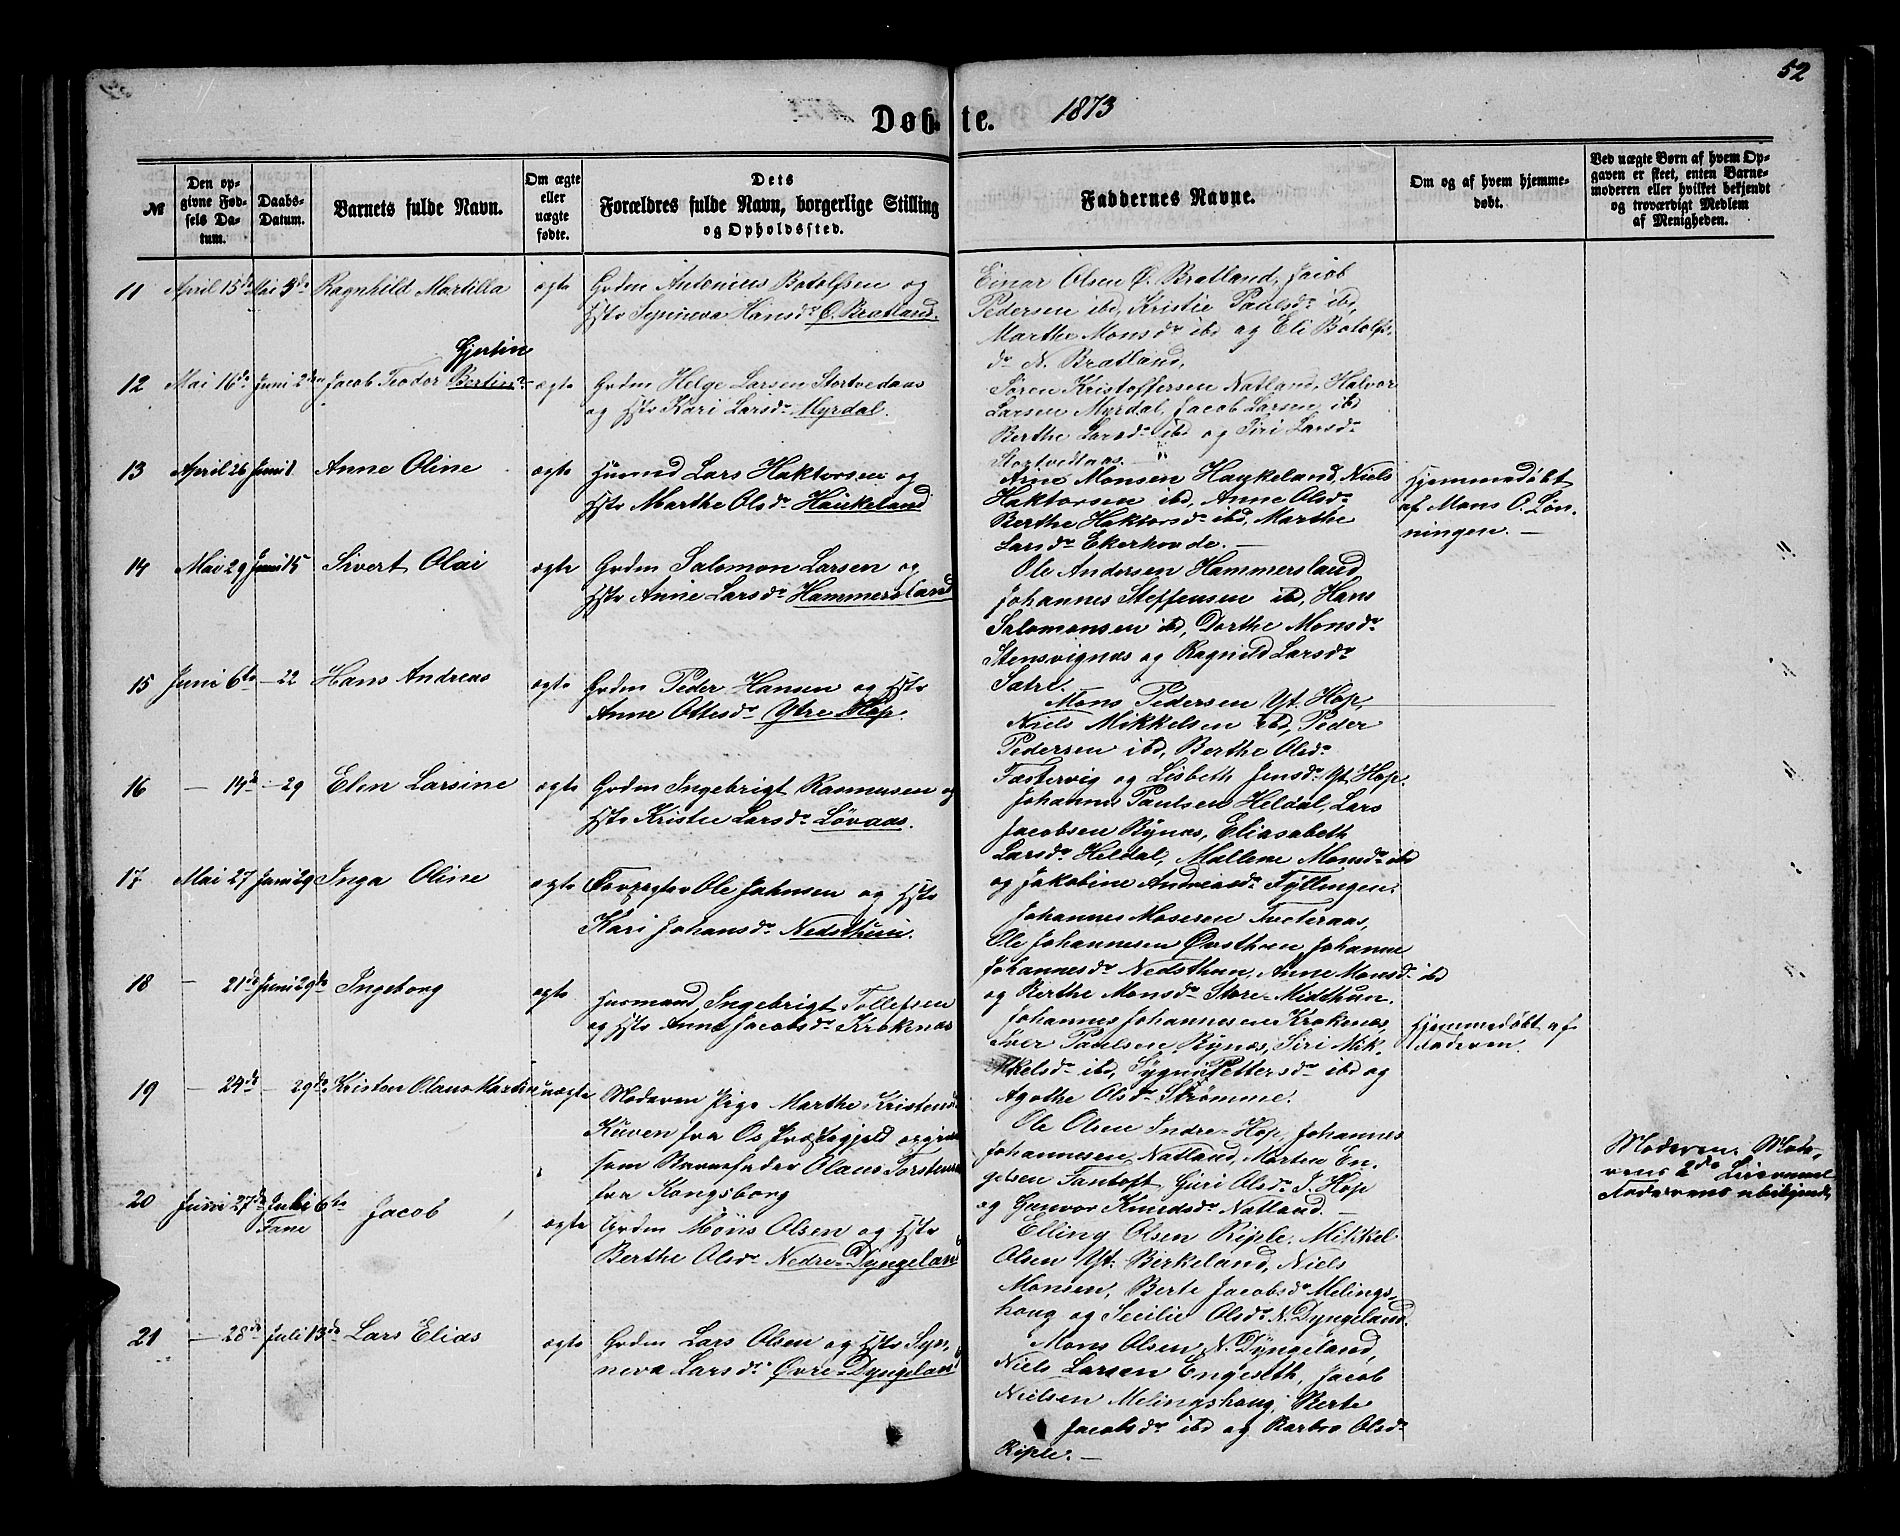 52
Døbte. 1873
№
Den opgivne Fødsels Datum.
Daabs-Datum.
Barnets fulde Navn.
Om ægte eller uægte fødte.
Dets Forældres fulde Navn, borgerlige Stilling og Opholdssted.
Faddernes Navne.
Om og af hvem hjemmedøbt.
Ved uægte Børn af hvem Opgaven er skeet, enten Barnemoderen eller hvilket bekjendt og troværdigt Medlem af Menigheden.
11 April 15de Mai 5de Ragnhild Martilia ægte
Grdm Antonius Botolfsen og
Hstr Synneva Hansdr Ø. Bratland.
Einar Olsen Ø. Bratland, Jacob
Pedersen ibd, Kristie Paulsdr ibd,
Marthe Monsdr ibd og Eli Botolfs-
dr N. Bratland.
Gjertin
12 Mai 16de Juni 2den Jacob Teodor Bertin ægte
Grdm Helge Larsen Stortvedaas
og Hstr Kari Larsdr Myrdal.
Søren Kristoffersen Natland, Halvor
Larsen Myrdal, Jacob Larsen ibd
Berthe Larsdr ibd og Siri Larsdr
Stortvedtaas.
13 April 26 Juni 1 Anne Oline ægte
Husmd Lars Haktorsen og
Hstr Marthe Olsdr Haukeland
Arne Monsen Haukeland, Niels
Haktorsen ibd, Anne Olsdr
Berthe Haktorsdr ibd, Marthe
Larsdr Ekerhovde. —
Hjemmedøbt
af Mons O. Løn-
ningen. —
14 Mai 29 Juni 15 Sivert Olai ægte
Grdm Salomon Larsen og
Hstr Anne Larsdr Hammersland
Ole Andersen Hammersland
Johannes Steffensen ibd, Hans
Salomonsen ibd, Dorthe Monsdr
Stensvignæs og Ragnild Larsdr
Sætre.
15 Juni 6te — 22 Hans Andreas ægte
Grdm Peder Hansen og Hstr
Anne Ottesdr Ytre Hop.
Mons Pedersen Yt. Hop,
Niels Mikkelsen ibd, Peder
Pedersen ibd, Berthe Olsdr
Tæstervig og Lisbeth Jensdr Yt. Hop.
16 — 14de — 29 Elen Larsine ægte
Grdm Ingebrigt Rasmusen og
Hstr Kristie Larsdr Løvaas.
Johannes Paulsen Heldal, Lars
Jacobsen Bynæs, Eliasabeth
Larsdr Heldal, Mallene Monsdr ibd
og Jakobine Andreasdr Tyllingen.
17 Mai 27 Juni 29 Inga Oline ægte
Forpagter Ole Johnsen og Hstr
Kari Johansdr Nedsthun.
Johannes Mosesen Tveteraas,
Ole Johannesen Øvsthun, Johanne
Johannesdr Nedsthun, Anne Monsdr ibd
og Berthe Monsdr Store-Midthun.
18 — 21de Juni 29de Ingeborg ægte
Husmand Ingebrigt Tollefsen
og Hstr Anna Jacobsdr Krokenæs
Johannes Johannesen Krokenæs,
Iver Paulsen Bynæs, Siri Mik-
kelsdr ibd, Sygni Pettersdr ibd og
Agathe Olsdr Strømme.
Hjemmedøbt af
Faderen.
19 — 24de — 29de Kristen Olaus Martin uægte
Moderen Pige Marthe Kristensdr
Kuven fra Os Præstegjeld
som Barnefader Olaus Torstensen
fra Kongsberg
Ole Olsen Indre-Hop, Johannes
Johannesen Natland, Morten En-
gelsen Fantoft, Guri Olsdr I. Hop
og Gunvor Knudsdr Natland. —
Moderen. Mode-
rens 2det Leiermaal
Faderens ubekjendt
20 Juni 27de Juli 6te Jacob ægte
Fane
Grdm Mons Olsen og Hstr
Berthe Olsdr Nedre-Dyngeland
Elling Olsen Riple, Mikkel
Olsen Yt. Birkeland, Niels
Monsen, Berte Jacobsdr Melings-
houg og Secilie Olsdr N. Dyngeland.
21 — 28de Juli 13de Lars Elias ægte
Grdm Lars Olsen og Hstr Syn-
neva Larsdr Øvre-Dyngeland
Mons Olsen N. Dyngeland
Niels Larsen Engeseth, Jacob
Nielsen Melingshoug, Berte
Jacobsdr ibd og Barbro Olsdr
Riple. —